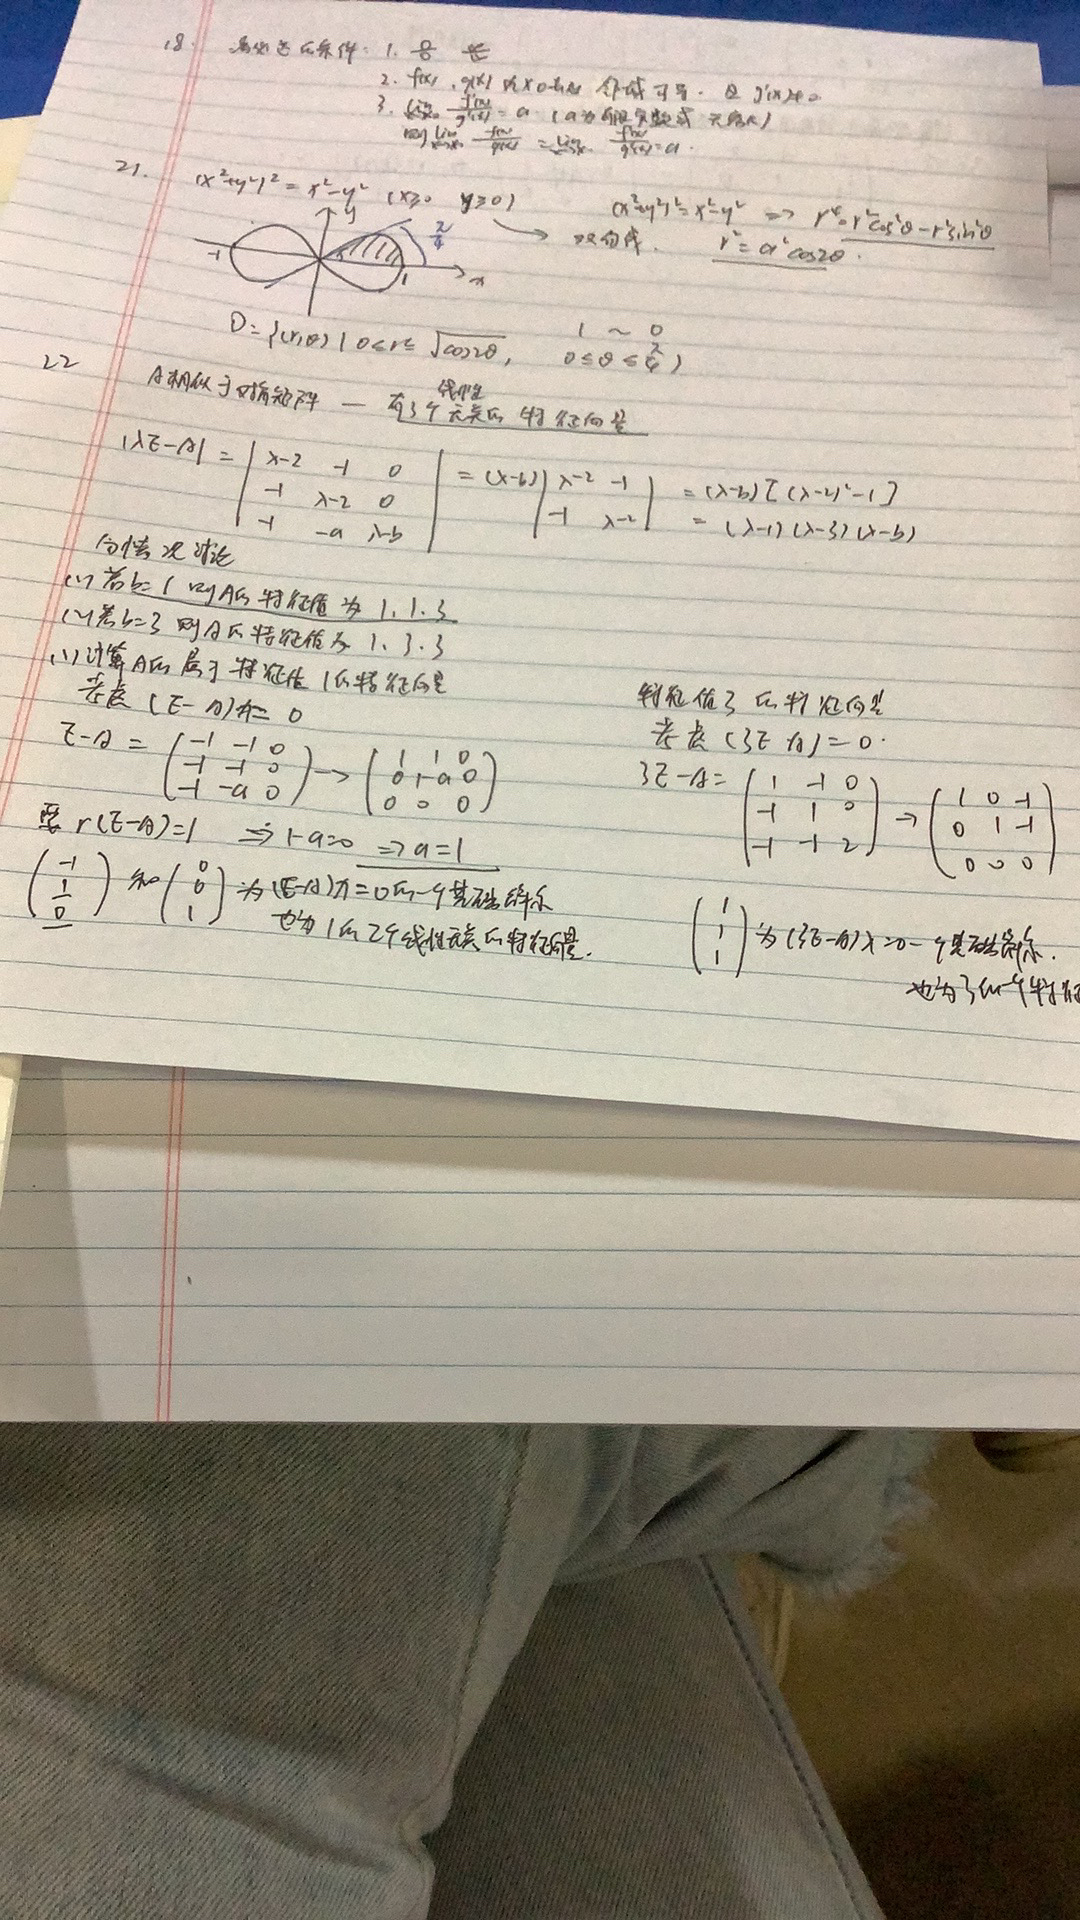 18. 洛必达的条件: 1.
2. f(x), g(x) 在x0的去心邻域可导. 且 g'(x)≠0
3. lim f'(x)/g'(x) = a (a为有限实数或无穷大)
则 lim f(x)/g(x) = lim f'(x)/g'(x) = a.
21. (x²+y²)² = x²-y² (x≥0 y≥0)
(x²+y²)² = x²-y² ⇒ r⁴=r²cos²θ-r²sin²θ
双纽线. r² = a²cos2θ.
y
π/4
-1 1 x
D = {(r,θ) | 0≤r≤ √cos2θ, 0≤θ≤π/4}
1 ~ 0
22 A相似于对角矩阵 — 有3个线性无关的特征向量
|λE-A| = | λ-2 -1 0 | = (λ-b) | λ-2 -1 | = (λ-b)[(λ-2)²-1]
| -1 λ-2 0 | | -1 λ-2 | = (λ-1)(λ-3)(λ-b)
| -1 -a λ-b |
分情况讨论
(1) 若b=1 则A的特征值为 1.1.3
(2) 若b=3 则A的特征值为 1.3.3
(1) 计算A的属于特征值1的特征向量
考虑 (E-A)x=0
E-A = ( -1 -1 0 ) → ( 1 1 0 )
( -1 -1 0 ) ( 0 1-a 0 )
( -1 -a 0 ) ( 0 0 0 )
要 r(E-A)=1 ⇒ 1-a=0 ⇒ a=1
( -1 1 0 ) 和 ( 0 0 1 ) 为(E-A)x=0的一个基础解系
也为1的2个线性无关的特征向量.
特征值3的特征向量
考虑 (3E-A)=0.
3E-A = ( 1 -1 0 ) → ( 1 0 -1 )
( -1 1 0 ) ( 0 1 -1 )
( -1 -1 2 ) ( 0 0 0 )
( 1 1 1 ) 为 (3E-A)x=0一个基础解系.
也为3的一个特征